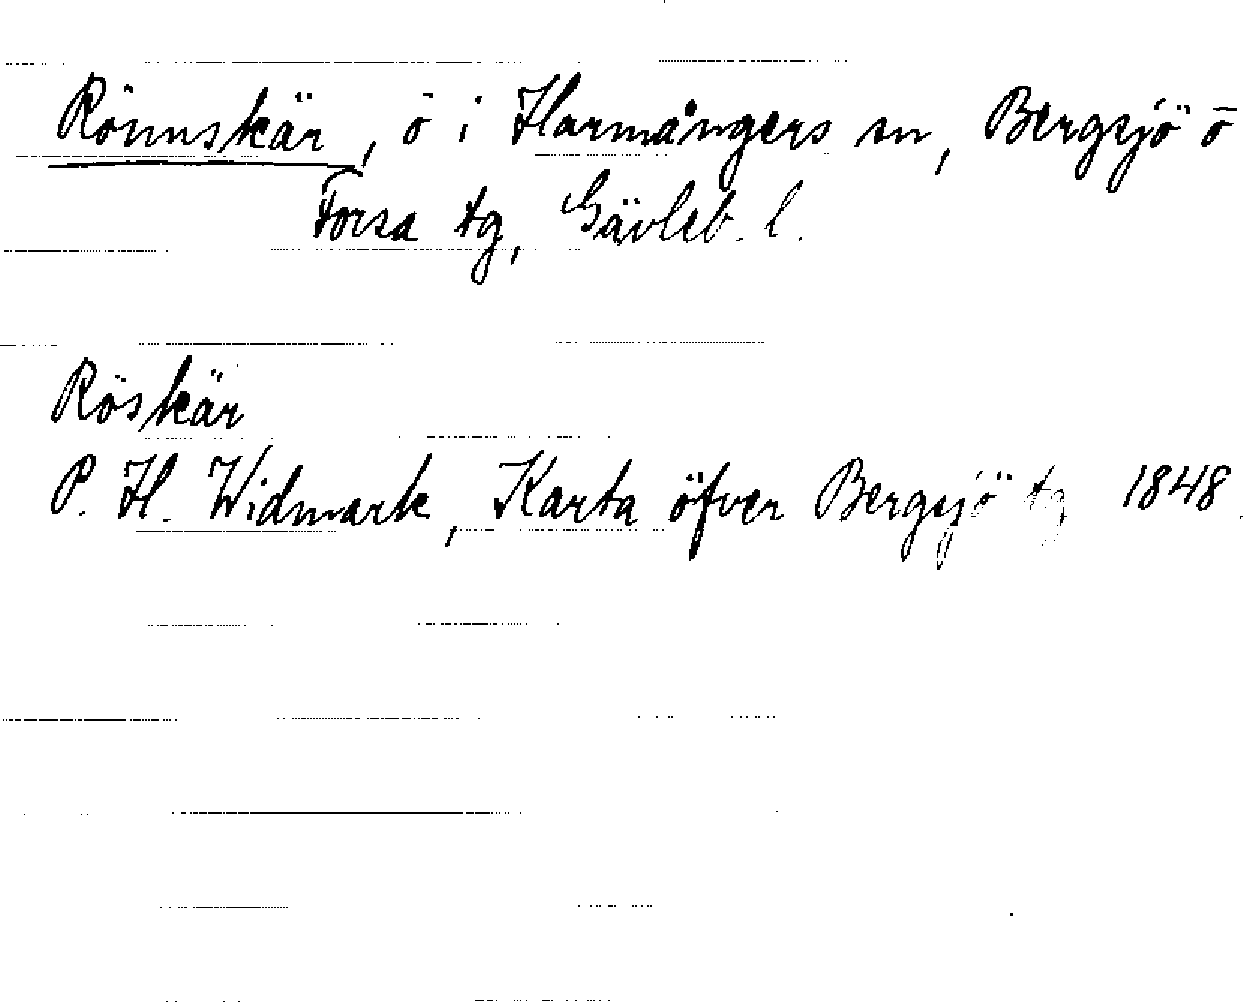 Rönnskär, ö i Harmångers sn, Bergsjö o
Forsa tg, Gävleb. l.
Röskär
P. H. Widmark, Karta öfver Bergsjö tg 1848.